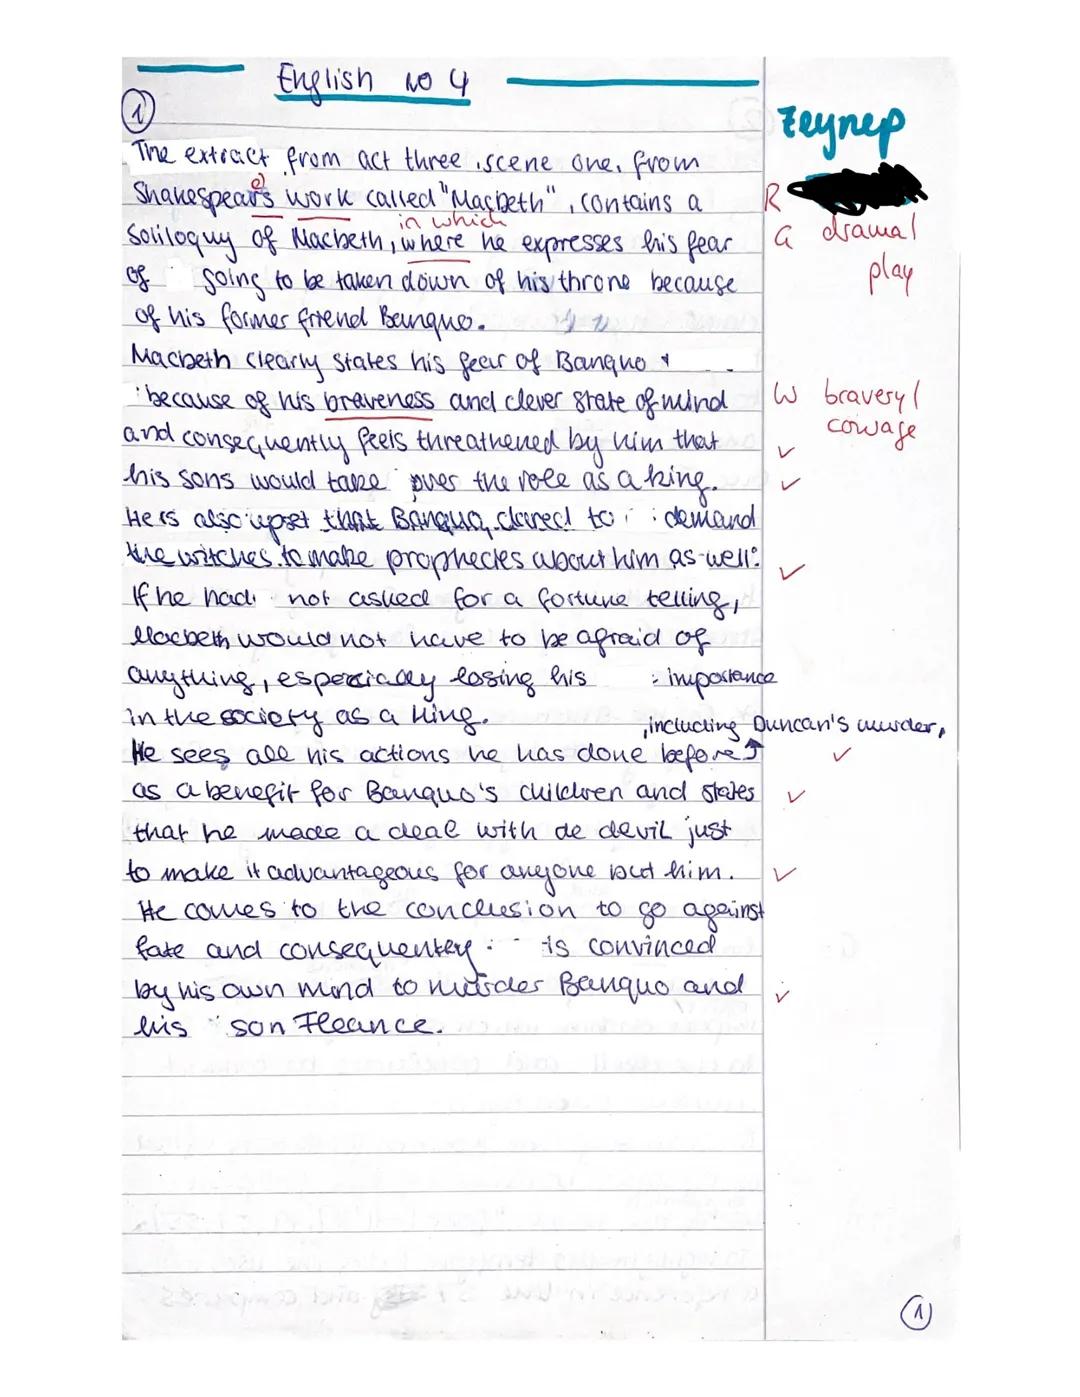 English No 4
1
Zeynep
The extract from act three, scene one, from
Shakespear's work called "Macbeth", contains a
e
R
drama/
play
in which
Soliloquy of Macbeth, where he expresses his fear
G
of going to be taken down of his throne because
of his former friend Banquo.
Macbeth clearly states his fear of Banquo
because of his braveness and clever state of mind
W bravery/
courage
and consequently feels threathened by him that
his sons would take over the role as a king.
He is also upset that Banquo dared to demand
the witches to make prophecies about him as well.
If he had not asked for a fortune telling,
Macbeth would not have to be afraid of
anything, especially losing his importance
in the society as a king.
, including Duncan's murder,
He sees all his actions he has done before
as a benefit for Banquo's children and states
that he made a deal with de devil just
to make it advantageous for anyone but him.
He comes to the conclusion to go against
fate and consequentey is convinced
by his own mind to murder Banquo and
his son Fleance.
1